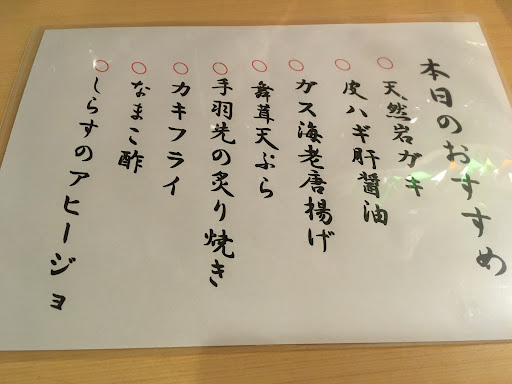 本日のおすすめ
○天然岩ガキ
○皮ハギ肝醤油
○ガス海老唐揚げ
○舞茸天ぷら
○手羽先の炙り焼き
○カキフライ
○なまこ酢
○しらすのアヒージョ